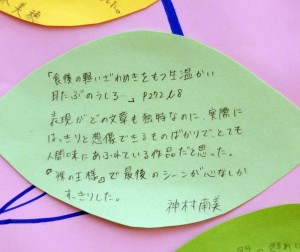 美穂
「食後の軽いざわめきをもつ生温かい
目たぶのうしろ…」P272 L8
表現がどの文章も独特なのに、実際に
はっきりと想像できるものばかりで、とても
人間の味にあふれている作品だと思った。
『裸の王様』で最後のシーンが心なしか
すっきりした。
神村南美